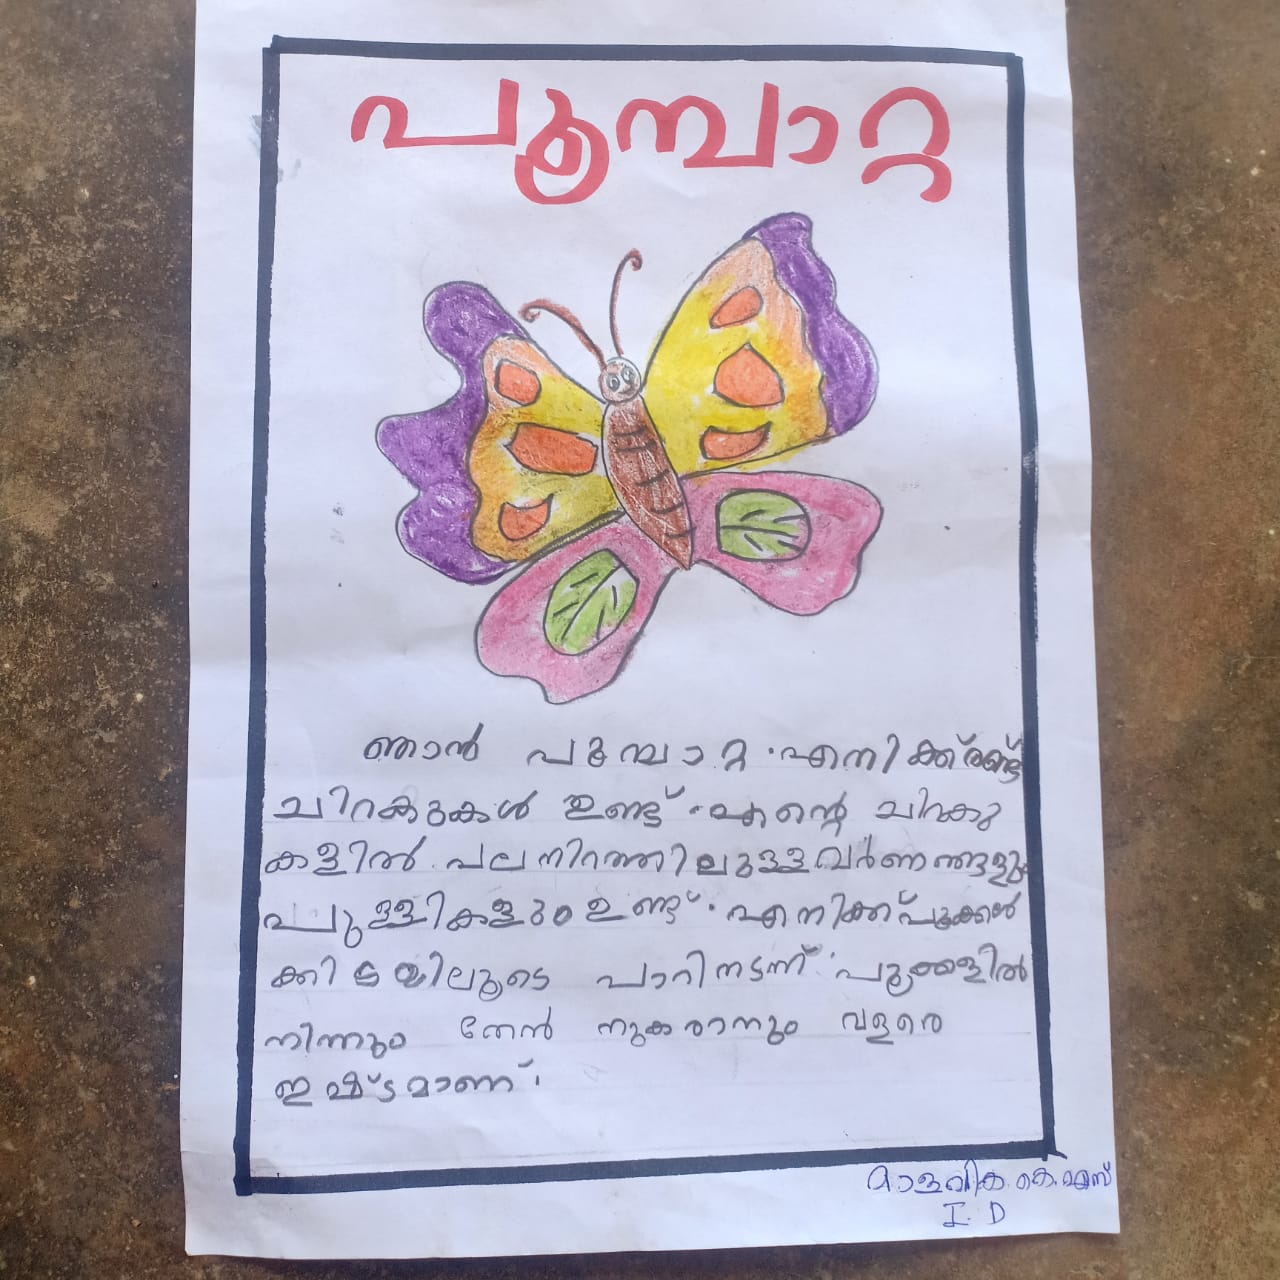 പൂമ്പാറ്റ
ഞാൻ പൂമ്പാറ്റ. എനിക്ക് രണ്ട്
ചിറകുകൾ ഉണ്ട്. എന്റെ ചിറകു
കളിൽ പല നിറത്തിലുള്ള വർണങ്ങളും
പുള്ളികളും ഉണ്ട്. എനിക്ക് പൂക്കൾ
ക്കിടയിലൂടെ പാറിനടന്ന് പൂക്കളിൽ
നിന്നും തേൻ നുകരാനും വളരെ
ഇഷ്ടമാണ്.
മാളവിക. കെ. എസ്
I. D